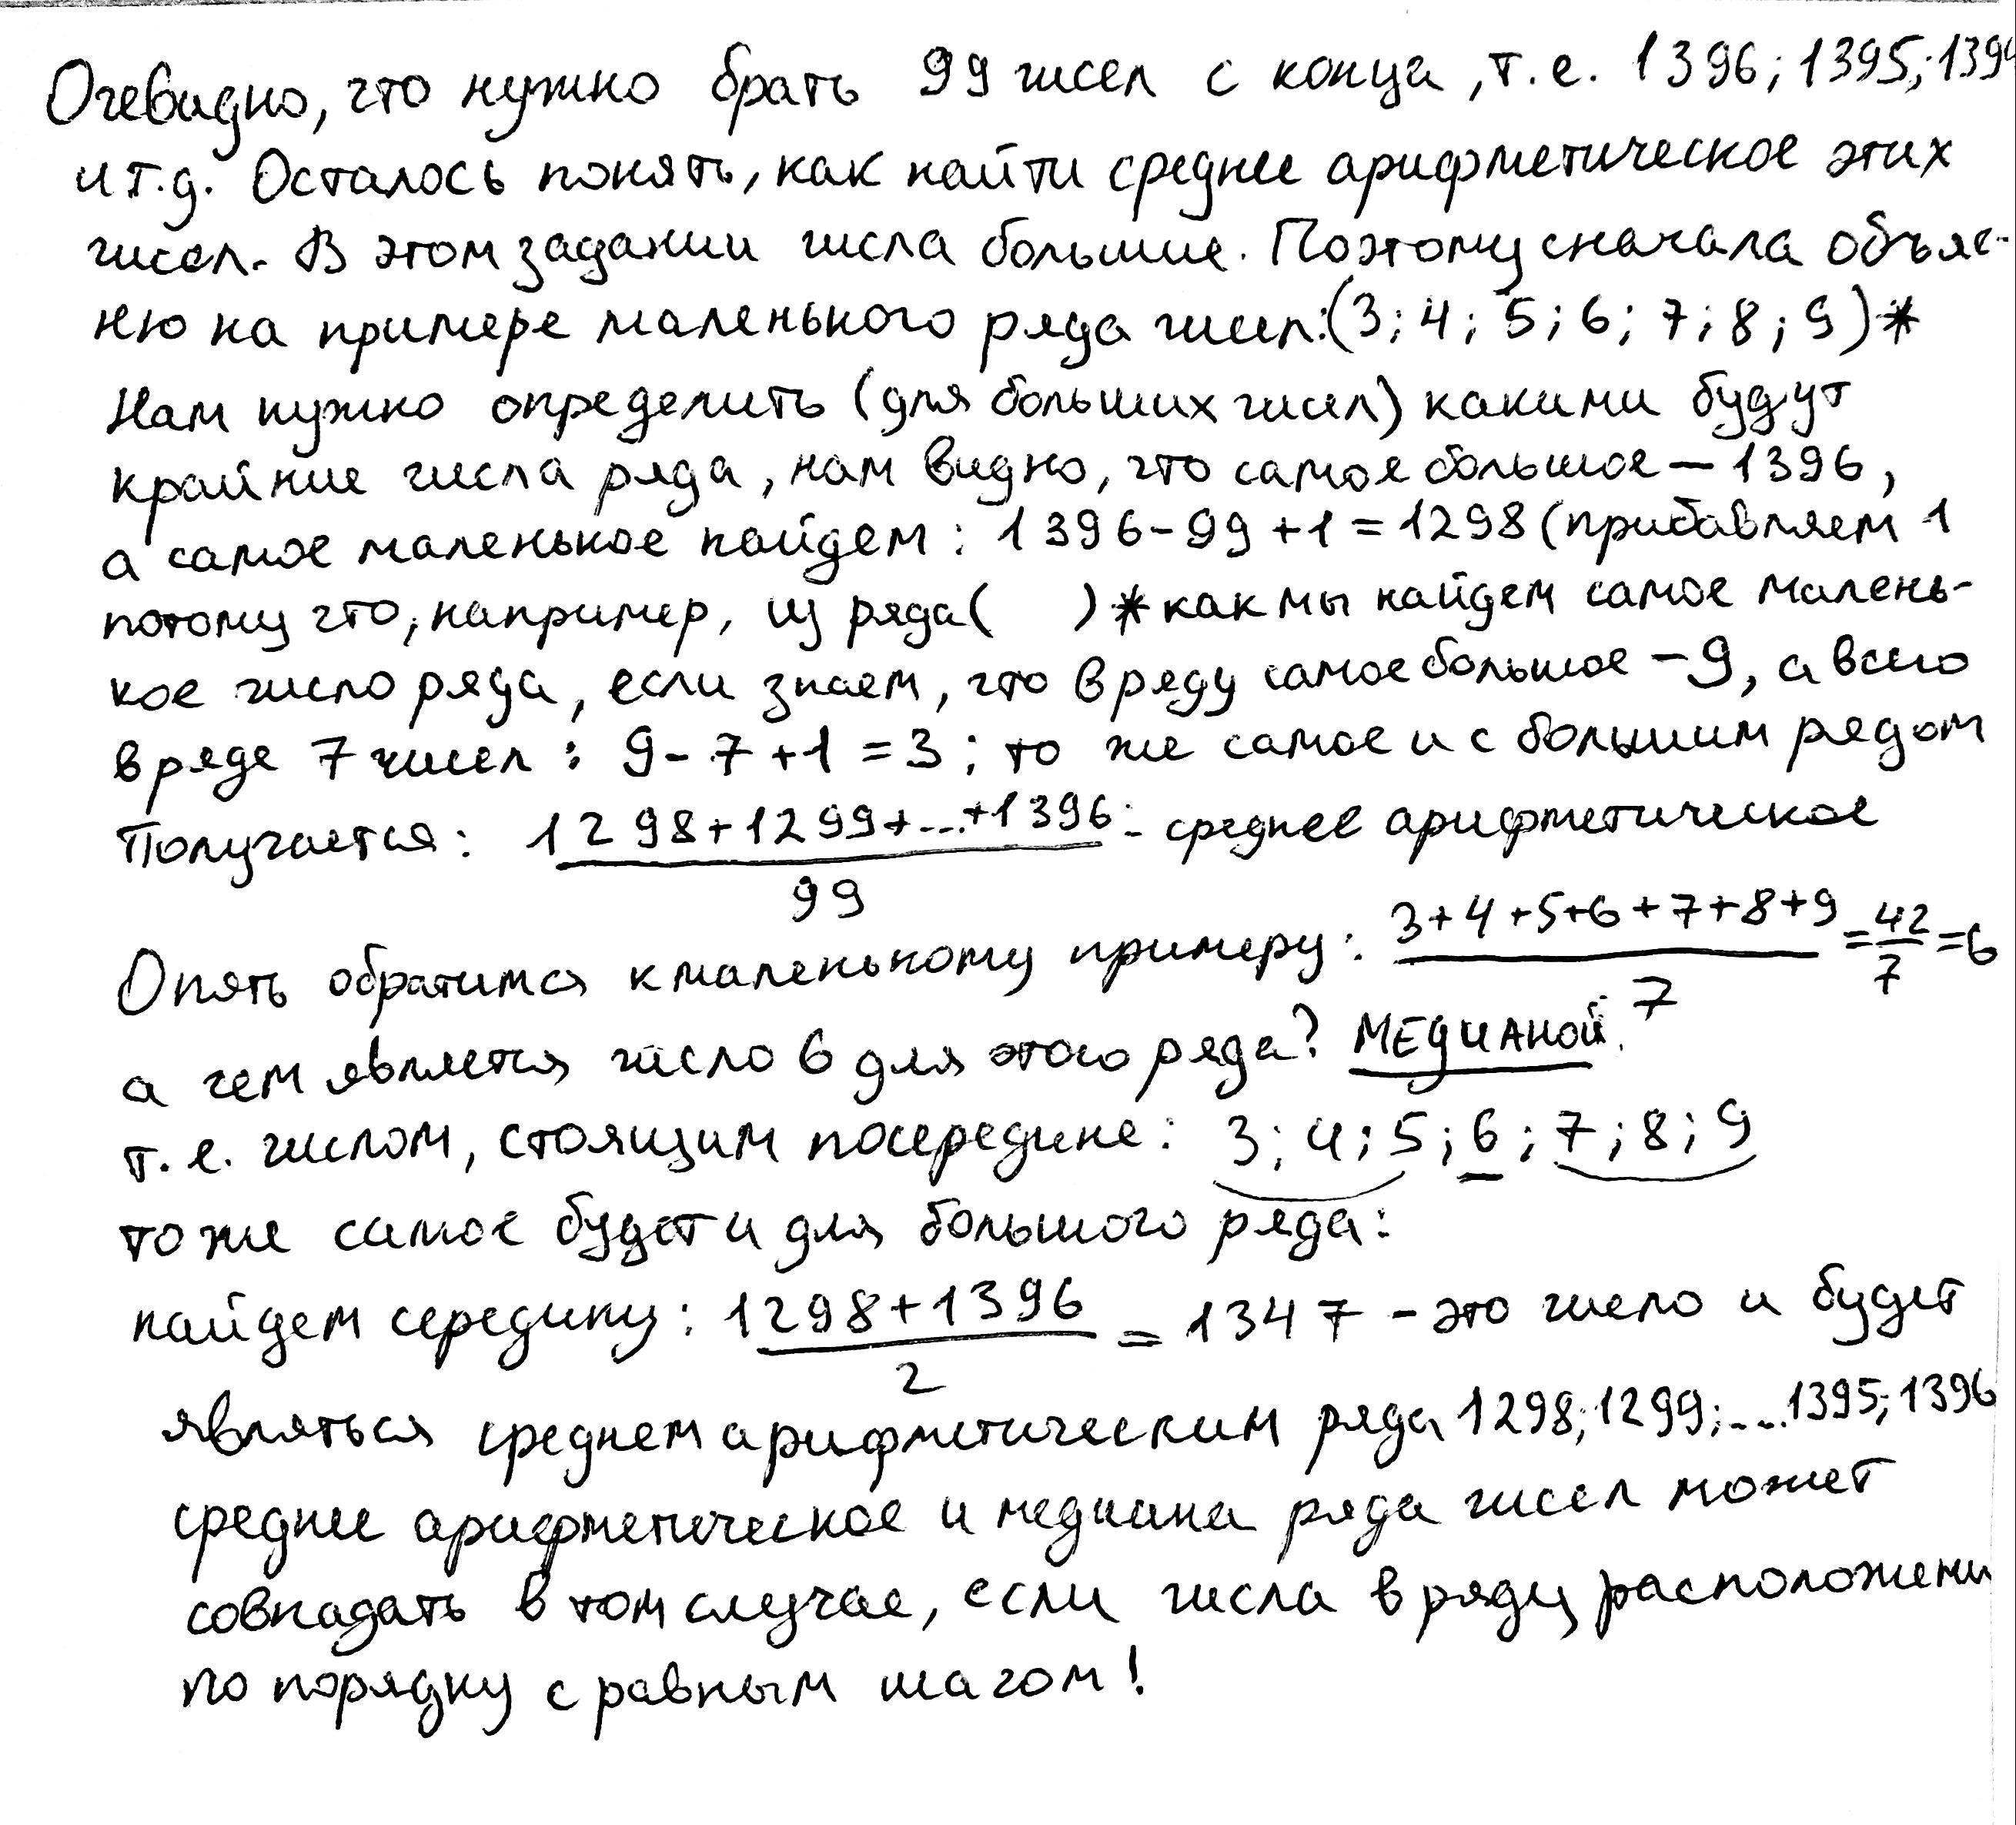 Очевидно, что нужно брать 99 чисел с конца, т.е. 1396; 1395; 1394
и т.д. Осталось понять, как найти среднее арифметическое этих
чисел. В этом задании числа большие. Поэтому сначала объяс-
ню на примере маленького ряда чисел: (3; 4; 5; 6; 7; 8; 9)*
Нам нужно определить (для больших чисел) какими будут
крайние числа ряда, нам видно, что самое большое – 1396,
а самое маленькое найдем: 1396-99+1=1298 (прибавляем 1
потому что, например, из ряда ( )* как мы найдем самое малень-
кое число ряда, если знаем, что в ряду самое большое – 9, а всего
в ряде 7 чисел: 9-7+1=3; то же самое и с большим рядом
Получается: 1298+1299+...+1396 - среднее арифметическое
99
Опять обратимся к маленькому примеру: 3+4+5+6+7+8+9 = 42 = 6
7 7
а чем является число 6 для этого ряда? МЕДИАНОЙ.
т.е. числом, стоящим посередине: 3; 4; 5; 6; 7; 8; 9
то же самое будет и для большого ряда:
найдем середину: 1298+1396 = 1347 - это число и будет
2
являться среднем арифметическим ряда 1298; 1299; ....1395; 1396
среднее арифметическое и медиана ряда чисел может
совпадать в том случае, если числа в ряду расположены
по порядку с равным шагом!